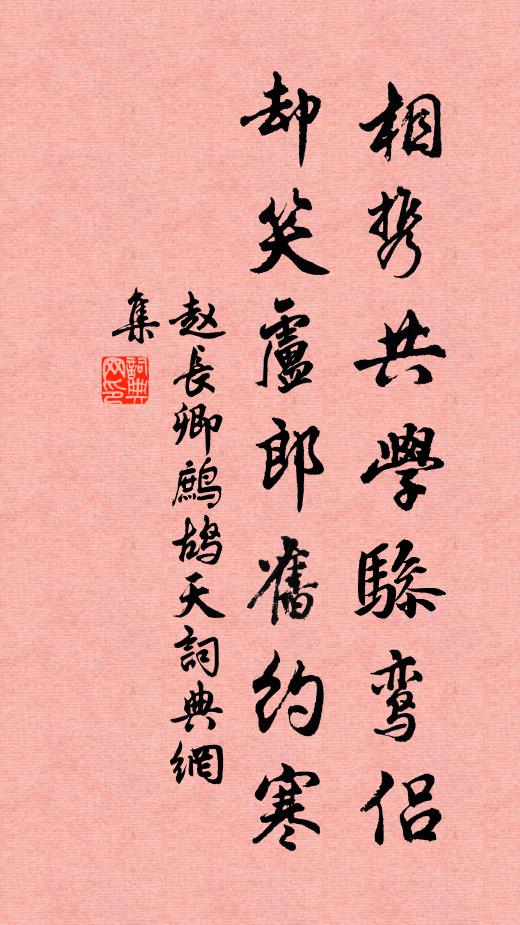 相携共學驂鸾侣
却笑盧郎舊约寒
赵長卿鷓鴣天詞典網
集
詞典
网印